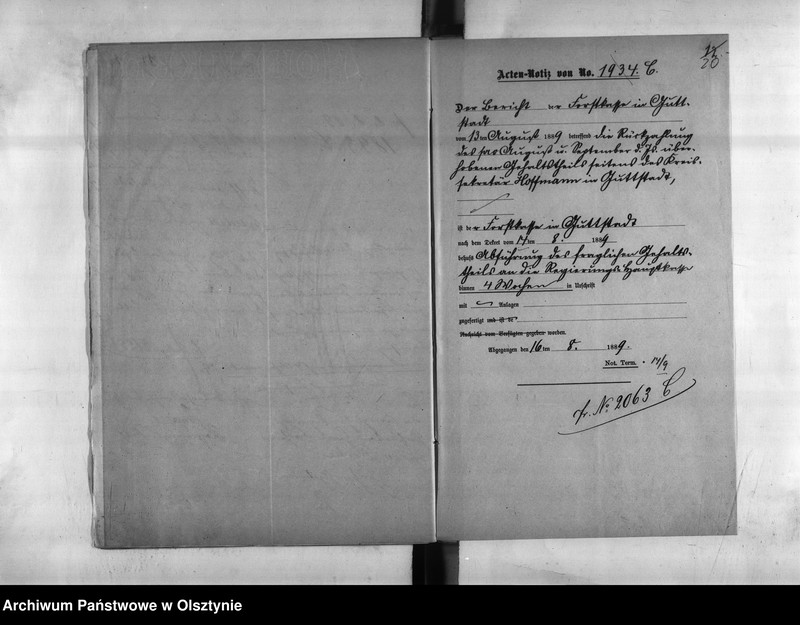 12
20
Acten-Notiz von No. 1934. C.
Der Bericht der Forstkasse in Gutt-
stadt
vom 13ten August 1889 betreffend die Rückzahlung
des pro August u. September d. Js. über-
hobenen Gehaltstheils seitens des Kreis-
sekretär Hoffmann in Guttstadt,
ist der Forstkasse in Guttstadt
nach dem Dekret vom 17ten 8. 1889
behufs Abführung des fraglichen Gehalts-
theils an die Regierungs-Hauptkasse
binnen 4 Wochen in Urschrift
mit Anlagen
zugefertigt und ist de
Nachricht vom Verfügten gegeben worden.
Abgegangen den 16ten 8. 1889.
Not. Term. 17/9
fr. No 2063 C
Archiwum Państwowe w Olsztynie